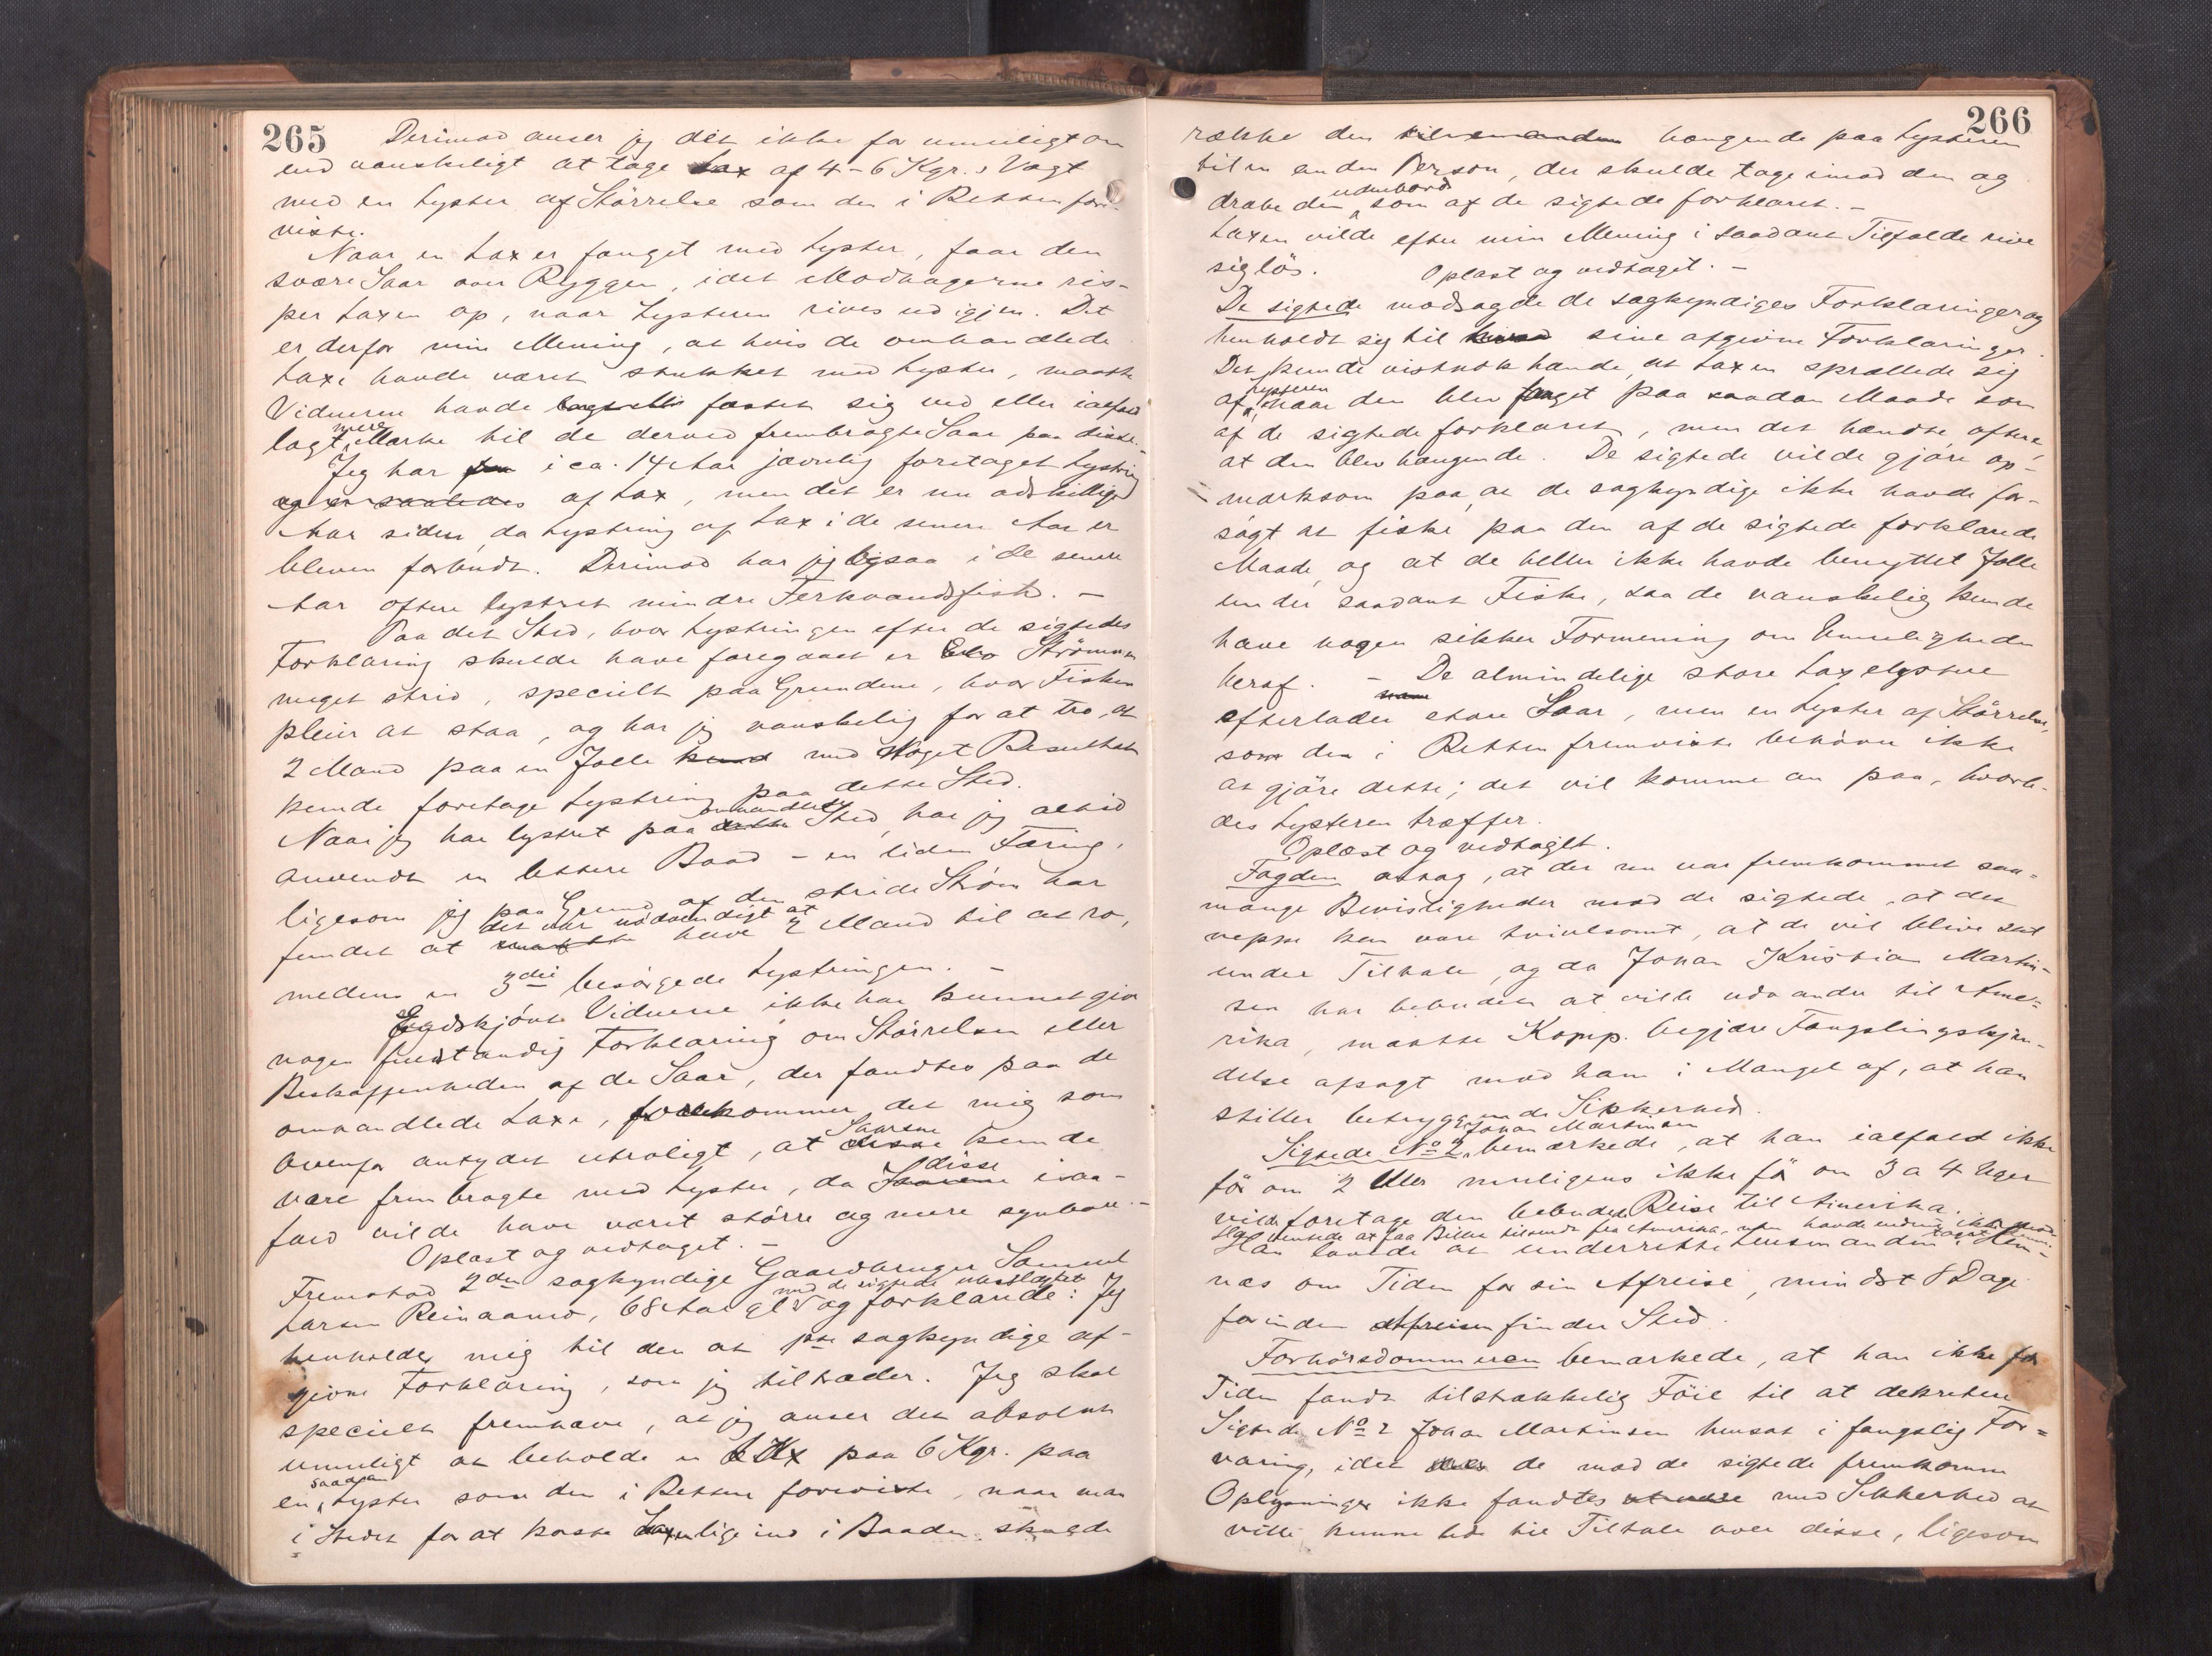 265
Derimod anser jeg det ikke for umuligt om
end vanskeligt at tage Lax af 4-6 Kgr.s Vægt
med en Lyster af Störrelse som den i Retten fore-
viste.
Naar en Lax er fanget med Lyster, faar den
svære Saar over Ryggen, idet Modhagerne ris-
per Laxen op, naar Lysteren rives ud igjen. Det
er derfor min Mening, at hvis de omhandlede
Laxe havde været stukket med Lyster, maatte
Vidnerne havde fæstet sig ved eller ialfald
lagt mere Mærke til de derved frembragte Saar paa disse.
Jeg har i ca. 14 Aar jævnlig foretaget Lystring
og er saaledes af Lax, men det er nu adskillige
Aar siden, da Lystring af Lax i de senere Aar er
bleven forbudt. Derimod har jeg ligesaa i de senere
Aar oftere lystret mindre Ferkvandsfisk. -
Paa det Sted, hvor Lystringen efter de sigtedes
Forklaring skulde have foregaaet er Strömmen
meget strid, specielt paa Grundene, hvor Fisken
pleier at staa, og har jeg vanskelig for at tro, at
2 Mand paa en Jolle med Noget Resultat
kunde foretage Lystring paa dette Sted.
Naar jeg har lystret paa omhandlede Sted, har jeg altid
anvendt en lettere Baad - en liden Færing,
ligesom jeg paa Grund af den stride Ström har
fundet at det var nödvendigt at have 2 Mand til at ro,
medens en 3die besörgede Lystringen. -
Endskjönt Vidnerne ikke har kunnet give
nogen fuldstændig Forklaring om Störrelsen eller
Beskaffenheden af de Saar, der fandtes paa de
omhandlede Laxe, forekommer det mig som
ovenfor antydet utroligt, at Saarene kunde
være frembragte med Lyster, da disse isaa-
fald vilde have været större og mere synbare. -
Oplæst og vedtaget. -
Fremstod 2den sagkyndige Gaardbruger Samuel
Larsen Reinaamo, 68 Aar gl. med de sigtede ubeslægtet og forklarede: Jeg
henholder mig til den at 1ste sagkyndige af-
givne Forklaring, som jeg tiltræder. Jeg skal
specielt fremhæve, at jeg anser det absolut
umuligt at beholde en Lax paa 6 Kgr. paa
en saadan Lyster som den i Retten foreviste, naar man
i Stedet for at kaste Laxen lige ind i Baaden skulde
266
række den hængende paa Lysteren
til en anden Person, der skulde tage imod den og
dræbe den udenbords som af de sigtede forklaret. -
Laxen vilde efter min Mening i saadant Tilfælde rive
sig lös. Oplæst og vedtaget. -
De sigtede modsagde de sagkyndiges Forklaringer og
henholdt sig til sine afgivne Forklaringer.
Det kunde vistnok hænde, at Laxen sprællede sig
af Lysteren, naar den blev fanget paa saadan Maade som
af de sigtede forklaret, men det hændte oftere,
at den blev hængende. De sigtede vilde gjöre op-
mærksom paa, at de sagkyndige ikke havde for-
sögt at fiske paa den af de sigtede forklarede
Maade, og at de heller ikke havde benyttet Jolle
under saadant Fiske, saa de vanskelig kunde
have nogen sikker Formening om Umuligheden
heraf. - De almindelige store Laxelystre
efterlader store Saar, men en Lyster af Störrelse,
som den i Retten fremviste behöver ikke
at gjöre dette; det vil komme an paa, hvorle-
des Lysteren træffer.
Oplæst og vedtaget.
Fogden antog, at der nu var fremkommet saa-
mange Bevisligheder mod de sigtede, at det
neppe kan være tvivlsomt, at de vil blive sat
under Tiltale, og da Johan Kristian Martin-
sen har bebudet at ville udvandre til Ame-
rika, maatte Komp. begjære Fængslingskjen-
delse afsagt mod ham i Mangel af, at han
stiller betryggende Sikkerhed.
Sigtede No 2 Johan Martinsen bemærkede, at han ialfald ikke
för om 2 eller muligens ikke för om 3 a 4 Uger
vilde foretage den bebudede Reise til Amerika.
Han ventede at faa Billet tilsendt fra Amerika, men havde endnu ikke
Han lovede at underrette Lensmanden i Hem-
næs om Tiden for sin Afreise, mindst 8 Dage
forinden Afreisen finder Sted.
Forhörsdommeren bemærkede, at han ikke for
Tiden fandt tilstrækkelig Föie til at dekretere
Sigtede No 2 Johan Martinsen hensat i fængslig For-
varing, idet de mod de sigtede fremkomne
Oplysninger ikke fandtes med Sikkerhed at
ville kunne lede til Tiltale over disse, ligesom